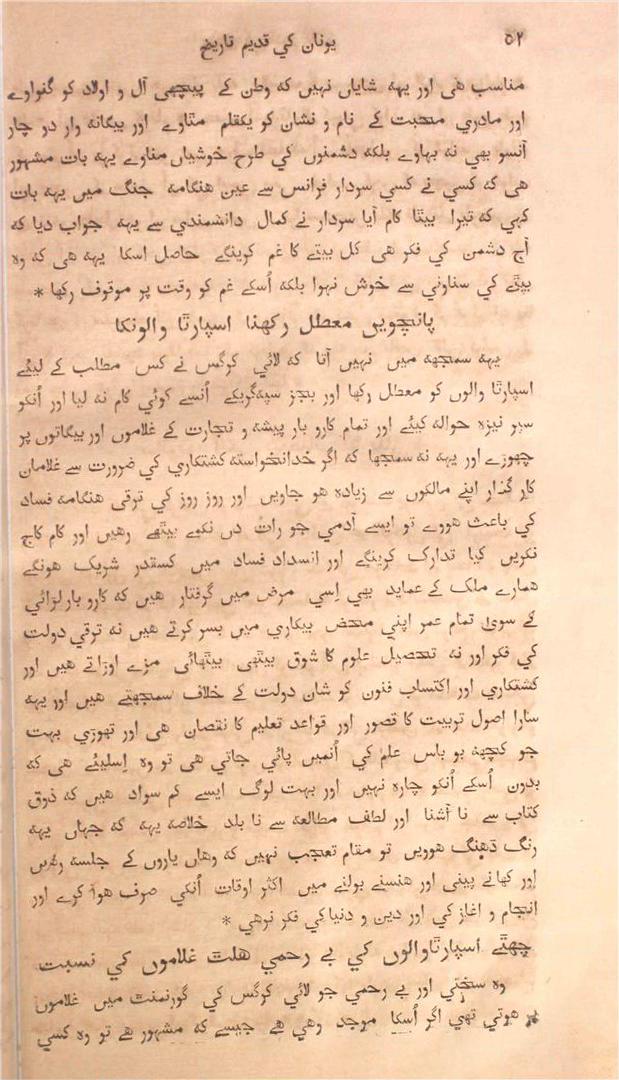 ۵۲
یونان کي قدیم تاریخ
مناسب هی اور یهه شایاں نہیں که وطن کے پیچھی آل و اولاد کو گنواوے
اور مادري محبت کے نام و نشان کو یکقلم مٹاوے اور بیگانه وار دو چار
آنسو بھي نه بهاوے بلکه دشمنوں کي طرح خوشیاں مناوے یهه بات مشهور
هی که کسي نے کسي سردار فرانس سے عین هنگامه جنگ میں یهه بات
کهي که تیرا بیٹا کام آیا سردار نے کمال دانشمندي سے یهه جواب دیا که
آج دشمن کي فکر هی کل بیٹے کا غم کرینگے حاصل اسکا یهه هی که وه
بیٹے کي سناوني سے خوش نهوا بلکه اُسکے غم کو وقت پر موقوف رکھا *
پانچویں معطل رکھنا اسپارٹا والونکا
یهه سمجھه میں نہیں آتا که لائي کرگس نے کس مطلب کے لیئے
اسپارٹا والوں کو معطل رکھا اور بجز سپهگریکے اُنسے کوئي کام نه لیا اور اُنکو
سپر نیزه حواله کیئے اور تمام کارو بار پیشه و تجارت کے غلاموں اور بیگانوں پر
چھوڑے اور یهه نه سمجھا که اگر خدانخواسته کشتکاري کي ضرورت سے غلامان
کار گذار اپنے مالکوں سے زیاده هو جاویں اور روز روز کي ترقی هنگامه فساد
کي باعث هووے تو ایسے آدمي جو رات دن نکمے بیٹھے رهیں اور کام کاج
نکریں کیا تدارک کرینگے اور انسداد فساد میں کسقدر شریک هونگے
همارے ملک کے عماید بھي اِسي مرض میں گرفتار هیں که کارو بار لڑائي
کے سوی تمام عمر اپني محض بیکاري میں بسر کرتے هیں نه ترقي دولت
کي فکر اور نه تحصیل علوم کا شوق بیٹھي بیٹھائی مزے اوڑاتے هیں اور
کشتکاري اور اکتساب فنون کو شان دولت کے خلاف سمجھتے هیں اور یهه
سارا اصول تربیت کا قصور اور قواعد تعلیم کا نقصان هی اور تھوڑي بہت
جو کچھه بو باس علم کي اُنمیں پائي جاتي هی تو وه اِسلیئے هی که
بدون اُسکے اُنکو چاره نہیں اور بہت لوگ ایسے کم سواد هیں که ذوق
کتاب سے نا آشنا اور لطف مطالعه سے نا بلد خلاصه یهه که جہاں یهه
رنگ ڈھنگ هوویں تو مقام تعجب نہیں که وهاں یاروں کے جلسه
اور کھانے پینی اور هنسنے بولنے میں اکثر اوقات اُنکي صرف هوا کرے اور
انجام و اغاز کي اور دین و دنیا کي فکر نرهي *
چھٹے اسپارٹاوالوں کي بے رحمي هلٹ غلاموں کي نسبت
وه سختي اور بے رحمي جو لائي کرگس کي گورنمنٹ میں غلاموں
هوتي تھي اگر اُسکا موجد وهي هے جیسے که مشهور هے تو وه کسي